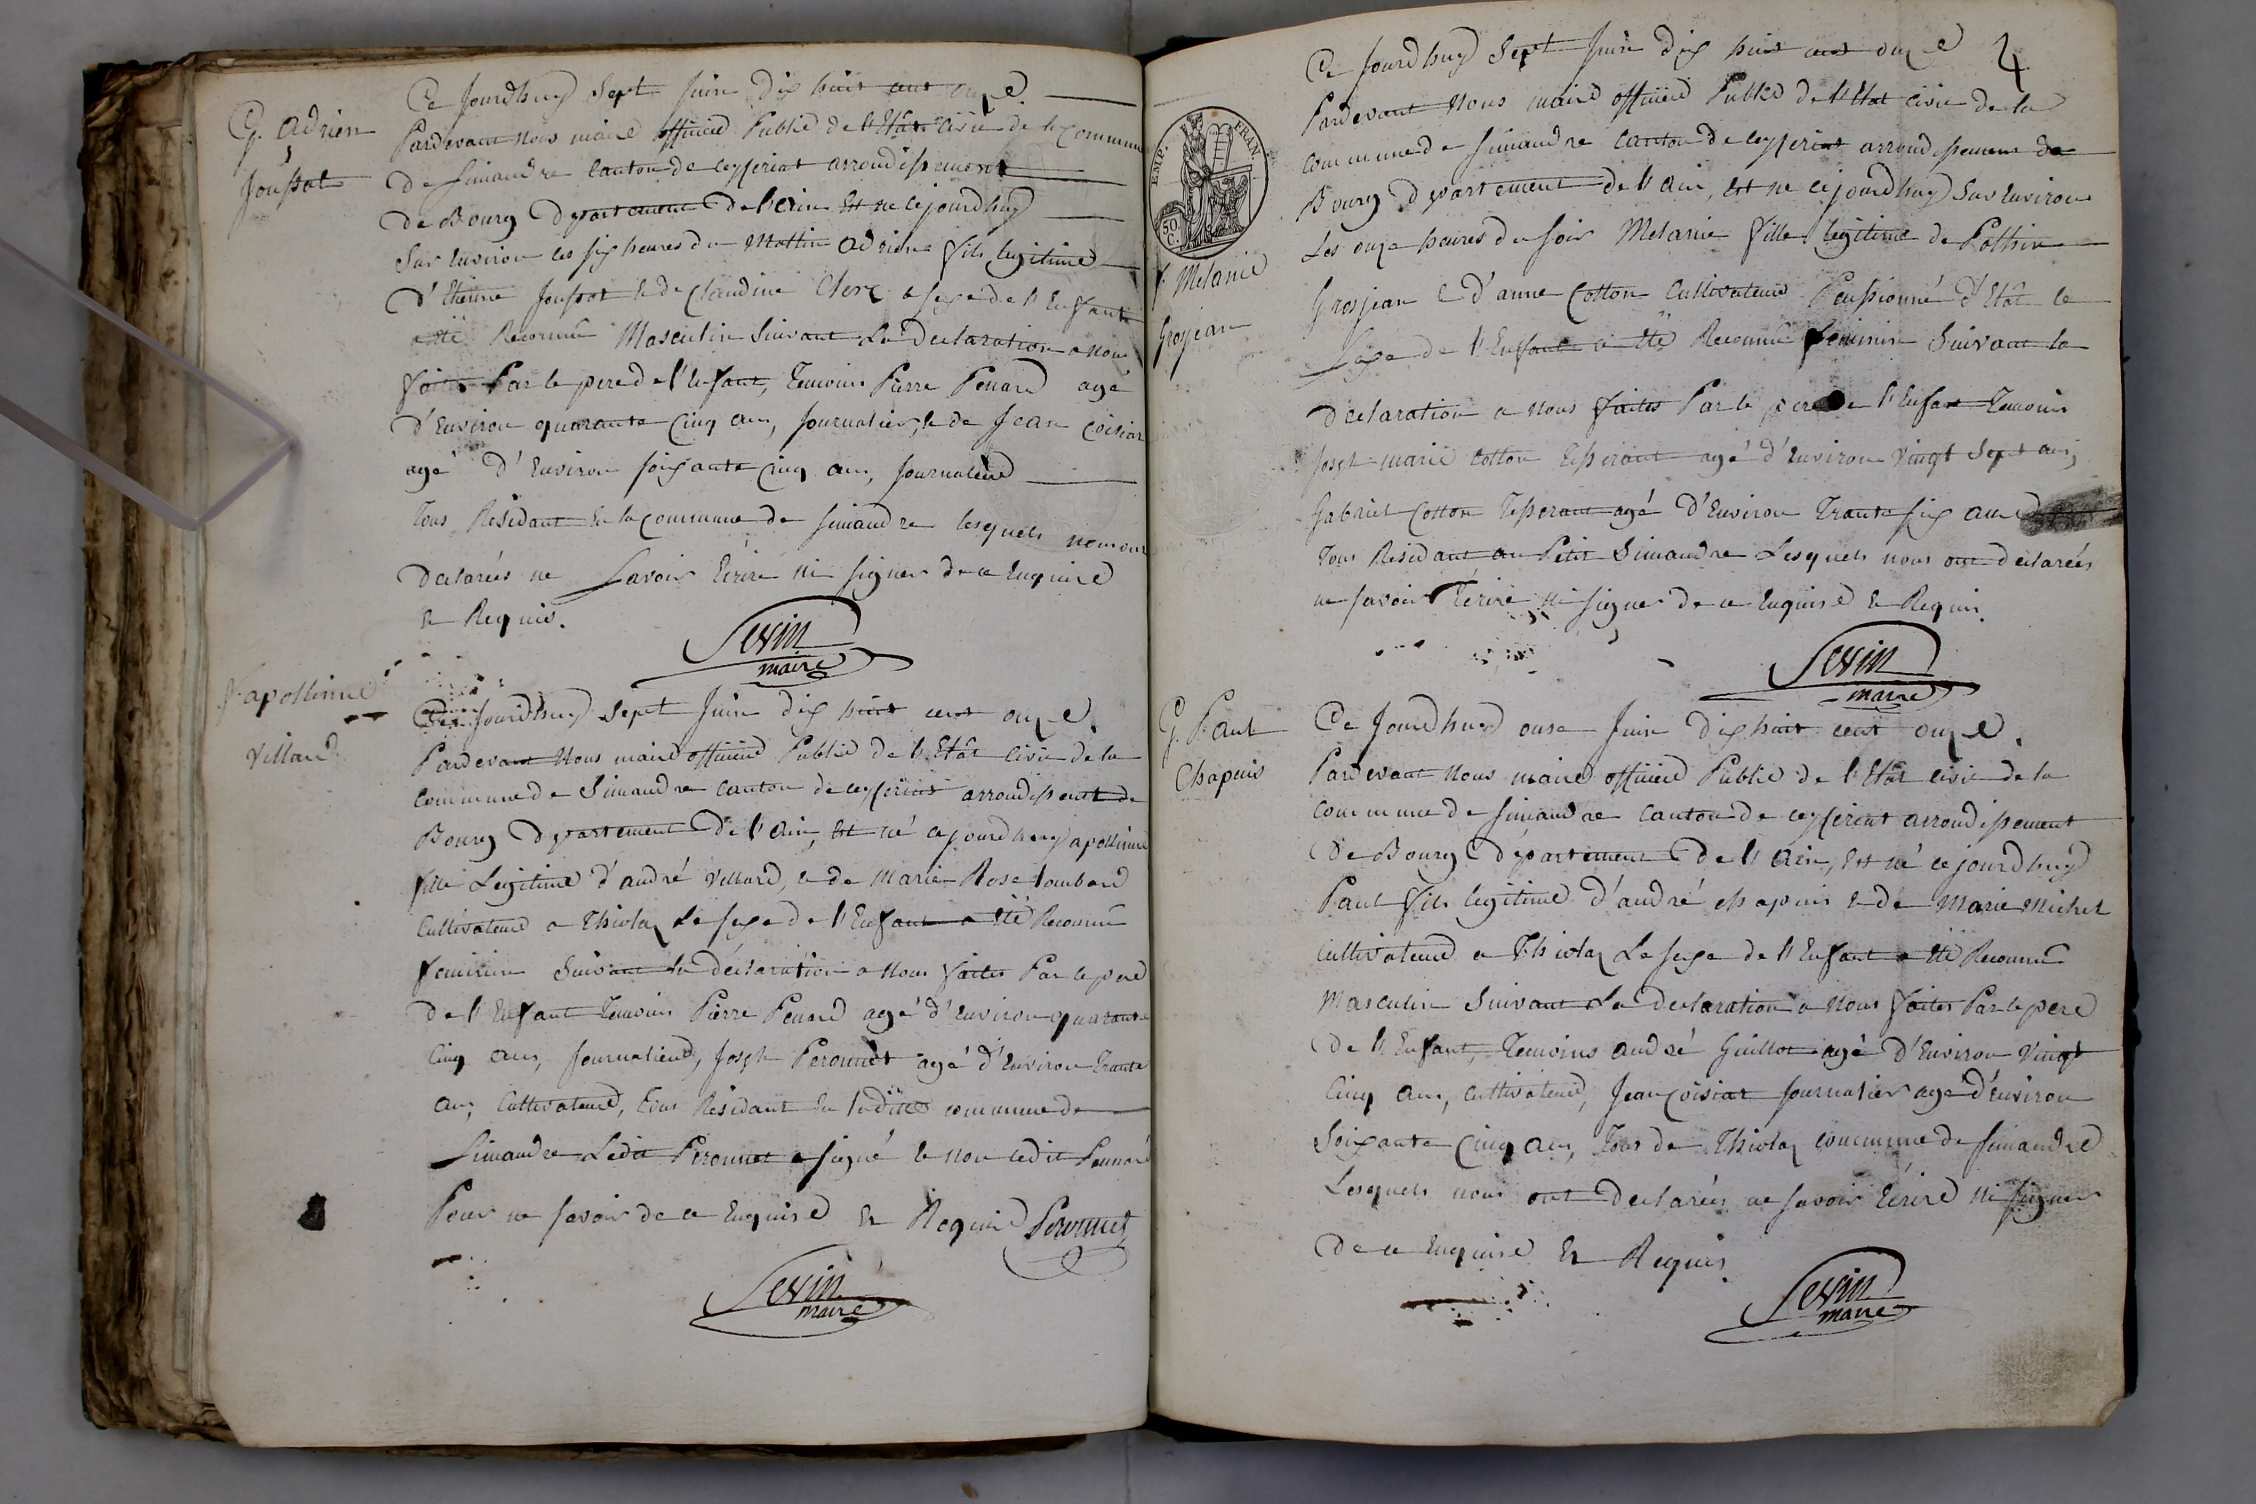 G. Adrien
Joussat
Ce Jourdhuy Sept Juin dix huit cent onze
Pardevant Nous maire officier Public de l'Etât civil de la Commune
de Simandre canton de ceyseriat arrondissement
de Bourg Departement De l'Ain Est né cejourdhuy
Sur Environ les six heures du Mattin adrien fils legitime
d'Etienne Joussat & de Claudine Clerc le sexe de l'Enfant
a été Reconnu Masculin Suivant La declaration a nous
faites Par le pere de l'Enfant, Temoins Pierre Penard agé
d'Environ quarante Cinq ans, Journalier, & de Jean Coisiat
agé d'Environ soixante Cinq ans, Journalier
Tous Résidant En la Commune de Simandre lesquels nous ont
declarées ne Savoir Ecrire ni signer de ce Enquire
& Requis.
Sevin
maire
F. apollinie
Villard
Ce Jourdhuy Sept Juin dix huit cent onze
Pardevant Nous maire officier Public de l'Etât civil de la
commune de Simandre canton de ceyseriat arrondissent de
Bourg Departement De l'Ain, Est né cejourdhuy apollinie
fille Legitime d'andré Villard, & de Marie Rose Tombard
Cultivateur a Thiolaz Le sexe de l'Enfant a été Reconnu
feminin Suivant la déclaration a Nous faites Par le pere
de l'Enfant Temoins Pierre Penard agé d'Environ quarante
Cinq ans, Journalier, Joseph Peronnet agé d'Environ Trante
ans, Cultivateur, Tous Résidant En ladite commune de
Simandre Ledit Peronnet a signé & non ledit Penard
Pour ne savoir de ce Enquire & Requis Peronnet
Sevin
maire
4
EMP. FRAN.
50 C.
F. Melanie
Grosjean
Ce Jourdhuy Sept Juin dix huit cent onze
Pardevant Nous maire officier Public de l'Etat civil de la
commune de Simandre canton de ceyseriat arrondissement de
Bourg Departement de l'Ain, Est né cejourdhuy Sur Environ
Les onze heures du soir Melanie fille legitime de Pothin
Grosjean & d'anne Cotton Cultivateur Penssionné d'Etât le
Sexe de l'Enfant a été Reconnu feminin Suivant la
declaration a nous faites Par le pere de l'Enfant Temoins
Joseph marie Cotton Tisserant agé d'Environ vingt Sept ans,
Gabriel Cotton Tisserant agé D'Environ Trante six ans
Tous Résidant au Petit Simandre Lesquels nous ont declarées
ne savoir Ecrire ni signer de ce Enquise & Requis.
Sevin
maire
G. Paul
Chapuis
Ce Jourdhuy onse Juin Dix huit cent onze.
Pardevant Nous maire officier Public de l'Etât civil de la
commune de Simandre canton de ceyseriat arrondissement
De Bourg Département de l'Ain, Est né cejourdhuy
Paul fils legitime d'andré chapuis & de Marie Michel
Cultivateur a Thiolaz Le sexe de l'Enfant a été Reconnu
Masculin Suivant La declaration a Nous faites Par le pere
De l'Enfant, Temoins andré Guillot agé D'Environ vingt
Cinq ans, cultivateur, Jean Coisiat Journalier agé d'Environ
Soixante Cinq ans, Tous de Thiolaz commune de Simandre
Lesquels nous ont declarées ne savoir Ecrire ni signer
de ce Enquise & Requis.
Sevin
maire